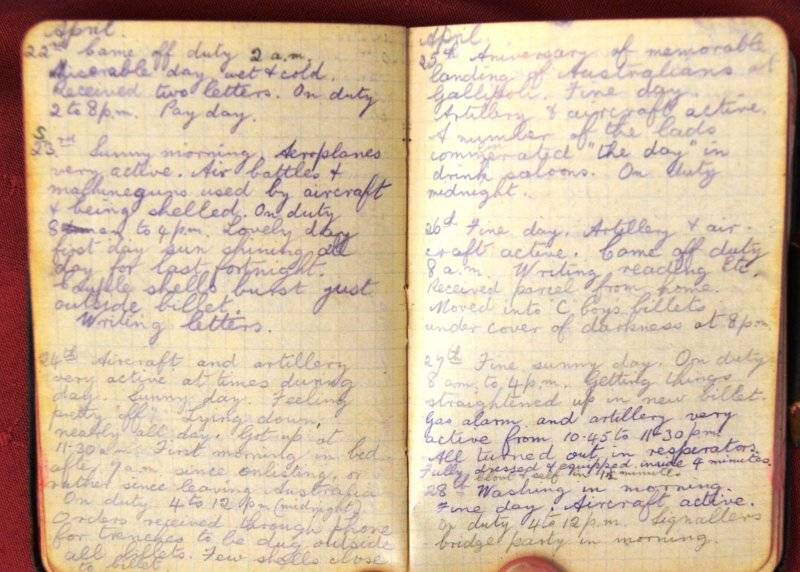 April.
22nd Came off duty 2 a.m.
Miserable day wet & cold.
Received two letters. On duty
2 to 8 p.m. Pay day.
S
23rd Sunny morning. Aeroplanes
very active. Air battles &
machineguns used by aircraft
& being shelled. On duty
8 am to 4 p.m. Lovely day
first day sun shining all
day for last fortnight.
Couple shells burst just
outside billet.
Writing letters.
24th Aircraft and artillery
very active at times during
day. Sunny day. Feeling
pretty off. Lying down,
nearly all day. Got up at
11-30 a.m. First morning in bed
after 7 a.m. since enlisting, or
rather since leaving Australia
On duty 4 to 12 pm (midnight)
Orders received through phone
for trenches to be dug outside
all billets. Few shells close
to billet.
April
25th Aniversary of memorable
landing of Australians at
Gallipoli. Fine day.
Artillery & aircraft active.
A number of the lads
commerated "the day" in
drink saloons. On duty
midnight.
26th Fine day. Artillery & air-
craft active. Came off duty
8 a.m. Writing reading Etc.
Received parcel from home.
Moved into C boys billets
under cover of darkness at 8 p.m.
27th Fine sunny day. On duty
8 am. to 4 p.m. Getting things
straightened up in new billet.
Gas alarm and artillery very
active from 10.45 to 11-30 pm
All turned out in respirators.
Fully dressed & equipped inside 4 minutes.
self in 1½ minutes
28th Washing in morning.
Fine day. Aircraft active.
On duty 4 to 12 p.m. Signallers
bridge party in morning.